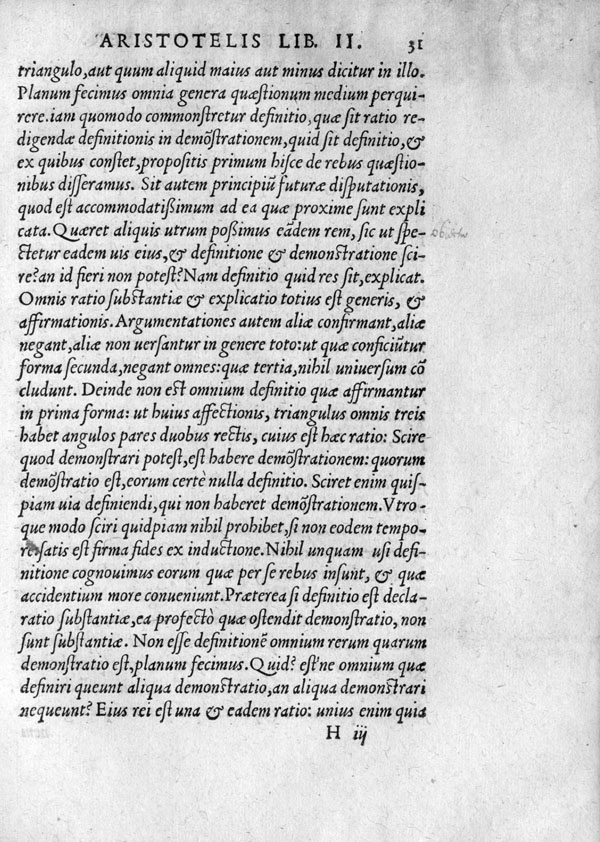 ARISTOTELIS LIB. II. 31
triangulo, aut quum aliquid maius aut minus dicitur in illo.
Planum fecimus omnia genera quæstionum medium perqui-
rere. iam quomodo commonstretur definitio, quæ sit ratio re-
digendæ definitionis in demõstrationem, quid sit definitio, &
ex quibus constet, propositis primum hisce de rebus quæstio-
nibus disseramus. Sit autem principiũ futuræ disputationis,
quod est accommodatißimum ad ea quæ proxime sunt expli
cata. Quæret aliquis utrum poßimus eãdem rem, sic ut spe-
ctetur eadem uis eius, & definitione & demonstratione sci-
re? an id fieri non potest? Nam definitio quid res sit, explicat.
Omnis ratio substantiæ & explicatio totius est generis, &
affirmationis. Argumentationes autem aliæ confirmant, aliæ
negant, aliæ non uersantur in genere toto: ut quæ conficiũtur
forma secunda, negant omnes: quæ tertia, nihil uniuersum cõ
cludunt. Deinde non est omnium definitio quæ affirmantur
in prima forma: ut huius affectionis, triangulus omnis treis
habet angulos pares duobus rectis, cuius est hæc ratio: Scire
quod demonstrari potest, est habere demõstrationem: quorum
demõstratio est, eorum certè nulla definitio. Sciret enim quis-
piam uia definiendi, qui non haberet demõstrationem. Vtro-
que modo sciri quidpiam nihil prohibet, si non eodem tempo-
re. satis est firma fides ex inductione. Nihil unquam usi defi-
nitione cognouimus eorum quæ per se rebus insunt, & quæ
accidentium more conueniunt. Præterea si definitio est decla-
ratio substantiæ, ea profectò quæ ostendit demonstratio, non
sunt substantiæ. Non esse definitionẽ omnium rerum quarum
demonstratio est, planum fecimus. Quid? est'ne omnium quæ
definiri queunt aliqua demonstratio, an aliqua demonstrari
nequeunt? Eius rei est una & eadem ratio: unius enim quia
H iij